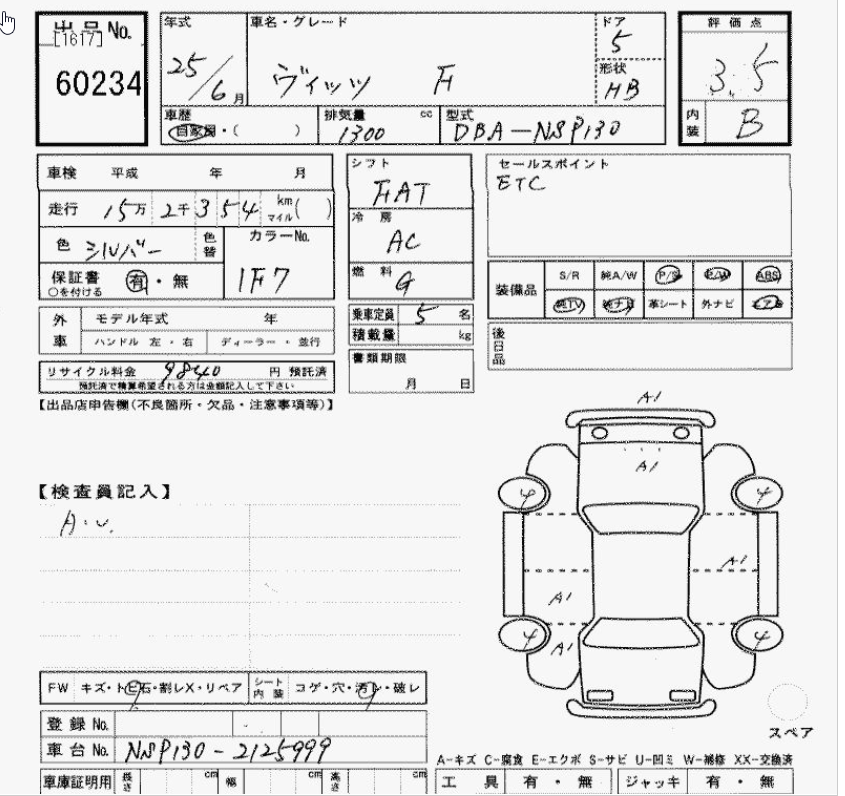 出品 No.
[1617]
60234
年式
25/6月
車名・グレード
ヴィッツ F
ドア
5
形状
HB
評価点
3.5
内装
B
車歴
自家用・( )
排気量 cc
1300
型式
DBA-NSP130
車検 平成 年 月
走行 15万2千354 km マイル( )
色 シルバー
色替
カラーNo.
1F7
保証書
○を付ける
有・無
シフト
FAT
冷房
AC
燃料
G
セールスポイント
ETC
装備品
S/R 純A/W P/S P/W ABS
純TV 純ナビ 革シート 外ナビ エアB
後日品
外車
モデル年式 年
ハンドル 左・右 ディーラー・並行
乗車定員 5 名
積載量 kg
リサイクル料金 9840 円 預託済
預託済で精算希望される方は金額記入して下さい
書類期限
月 日
【出品店申告欄(不良箇所・欠品・注意事項等)】
【検査員記入】
A・U.
A1
A1
4 4
A1
A1
4 A1 4
スペア
FW キズ・トビ石・割レX・リペア
シート内装 コゲ・穴・汚レ・破レ
登録 No.
車台 No. NSP130-2125999
A-キズ C-腐食 E-エクボ S-サビ U-凹ミ W-補修 XX-交換済
車庫証明用 長さ cm 幅 cm 高さ cm
工具 有・無 ジャッキ 有・無